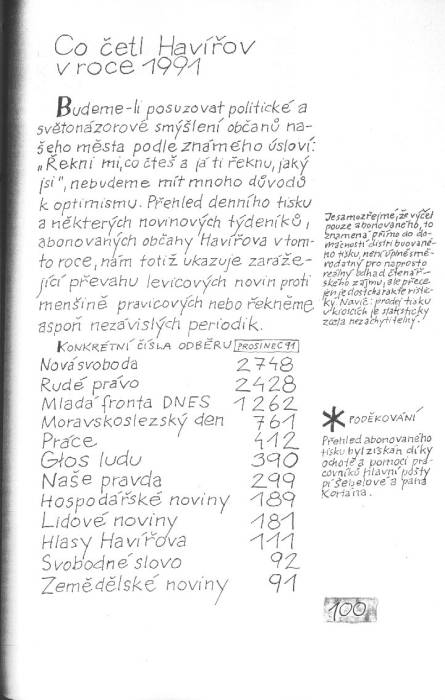 Co četl Havířov
v roce 1991
Budeme-li posuzovat politické a
světonázorové smýšlení občanů na-
šeho města podle známého úsloví:
„Řekni mi, co čteš a já ti řeknu, jaký
jsi", nebudeme mít mnoho důvodů
k optimismu. Přehled denního tisku
a některých novinových týdeníků,
abonovaných občany Havířova v tom-
to roce, nám totiž ukazuje zaráže-
jící převahu levicových novin proti
menšině pravicových nebo řekněme
aspoň nezávislých periodik.
Konkrétní čísla odběru prosinec 91
Nová svoboda 2748
Rudé právo 2428
Mladá fronta DNES 1262
Moravskoslezský den 761
Práce 412
Głos ludu 390
Naše pravda 299
Hospodářské noviny 189
Lidové noviny 181
Hlasy Havířova 111
Svobodné slovo 92
Zemědělské noviny 91
Je samozřejmé, že výčet
pouze abonovaného, to
znamená přímo do do-
mácností distribuované-
ho tisku, není úplně smě-
rodatný pro naprosto
reálný odhad čtenář-
ského zájmu, ale přece
jen je dosti charakteristic-
ký. Navíc: prodej tisku
v kioscích je statisticky
zcela nezachytitelný!
* Poděkování
Přehled abonovaného
tisku byl získán díky
ochotě a pomoci pra-
covníků hlavní pošty
pí Šebelové a pana
Koriana.
100